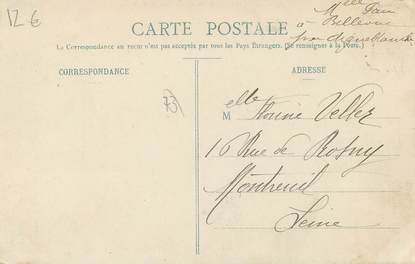 12 €
Mlle
à Bellevue
par Aigueblanche
CARTE POSTALE
La Correspondance au recto n'est pas acceptée par tous les Pays Étrangers. (Se renseigner à la Poste.)
CORRESPONDANCE
ADRESSE
73
Melle Vellez
16 Rue de Rosny
Montreuil
Seine